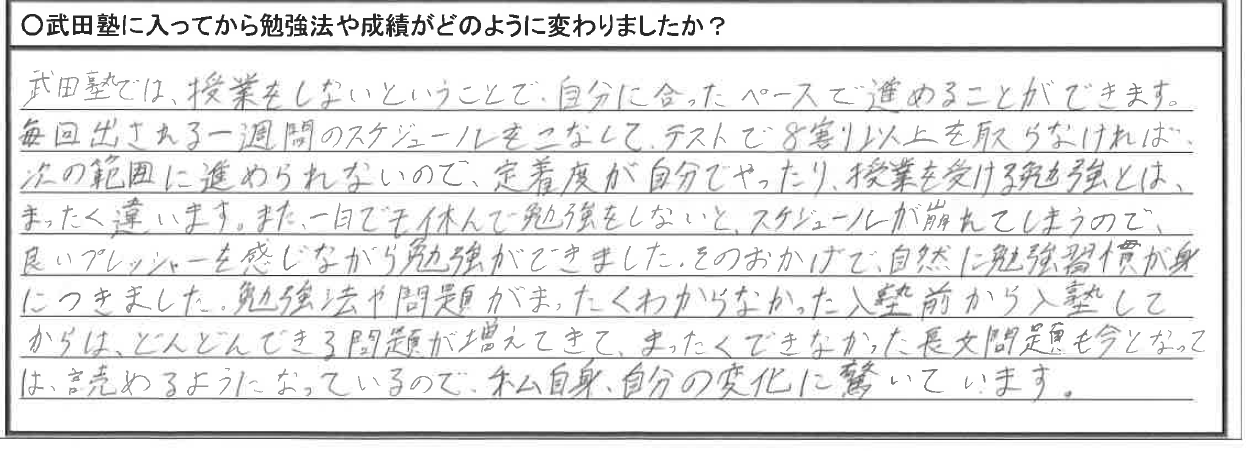 〇武田塾に入ってから勉強法や成績がどのように変わりましたか？
武田塾では、授業をしないということで、自分に合ったペースで進めることができます。
毎回出される一週間のスケジュールをこなして、テストで8割り以上を取らなければ、
次の範囲に進められないので、定着度が自分でやったり、授業を受ける勉強とは、
まったく違います。また、一日でも休んで勉強をしないと、スケジュールが崩れてしまうので、
良いプレッシャーを感じながら勉強ができました。そのおかげで、自然に勉強習慣が身
につきました。勉強法や問題がまったくわからなかった入塾前から入塾して
からは、どんどんできる問題が増えてきて、まったくできなかった長文問題も今となって
は、読めるようになっているので、私自身、自分の変化に驚いています。